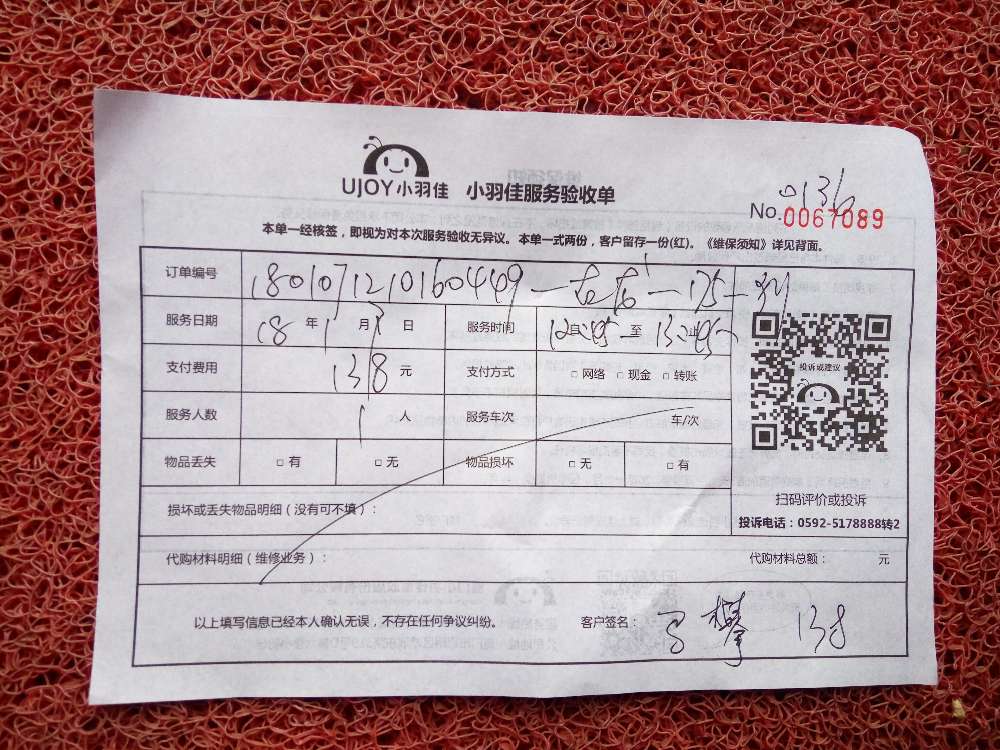 UJOY小羽佳 小羽佳服务验收单
0136
No.0067089
本单一经核签，即视为对本次服务验收无异议。本单一式两份，客户留存一份(红)。《维保须知》详见背面。
订单编号 1801071210160449
服务日期 18年1月7日 服务时间 自 至 止
支付费用 138元 支付方式 □网络 □现金 □转账
服务人数 1人 服务车次 车/次
物品丢失 □有 □无 物品损坏 □无 □有
投诉或建议
扫码评价或投诉
损坏或丢失物品明细（没有可不填）：
投诉电话：0592-5178888转2
代购材料明细（维修业务）： 代购材料总额： 元
以上填写信息已经本人确认无误，不存在任何争议纠纷。 客户签名： 138